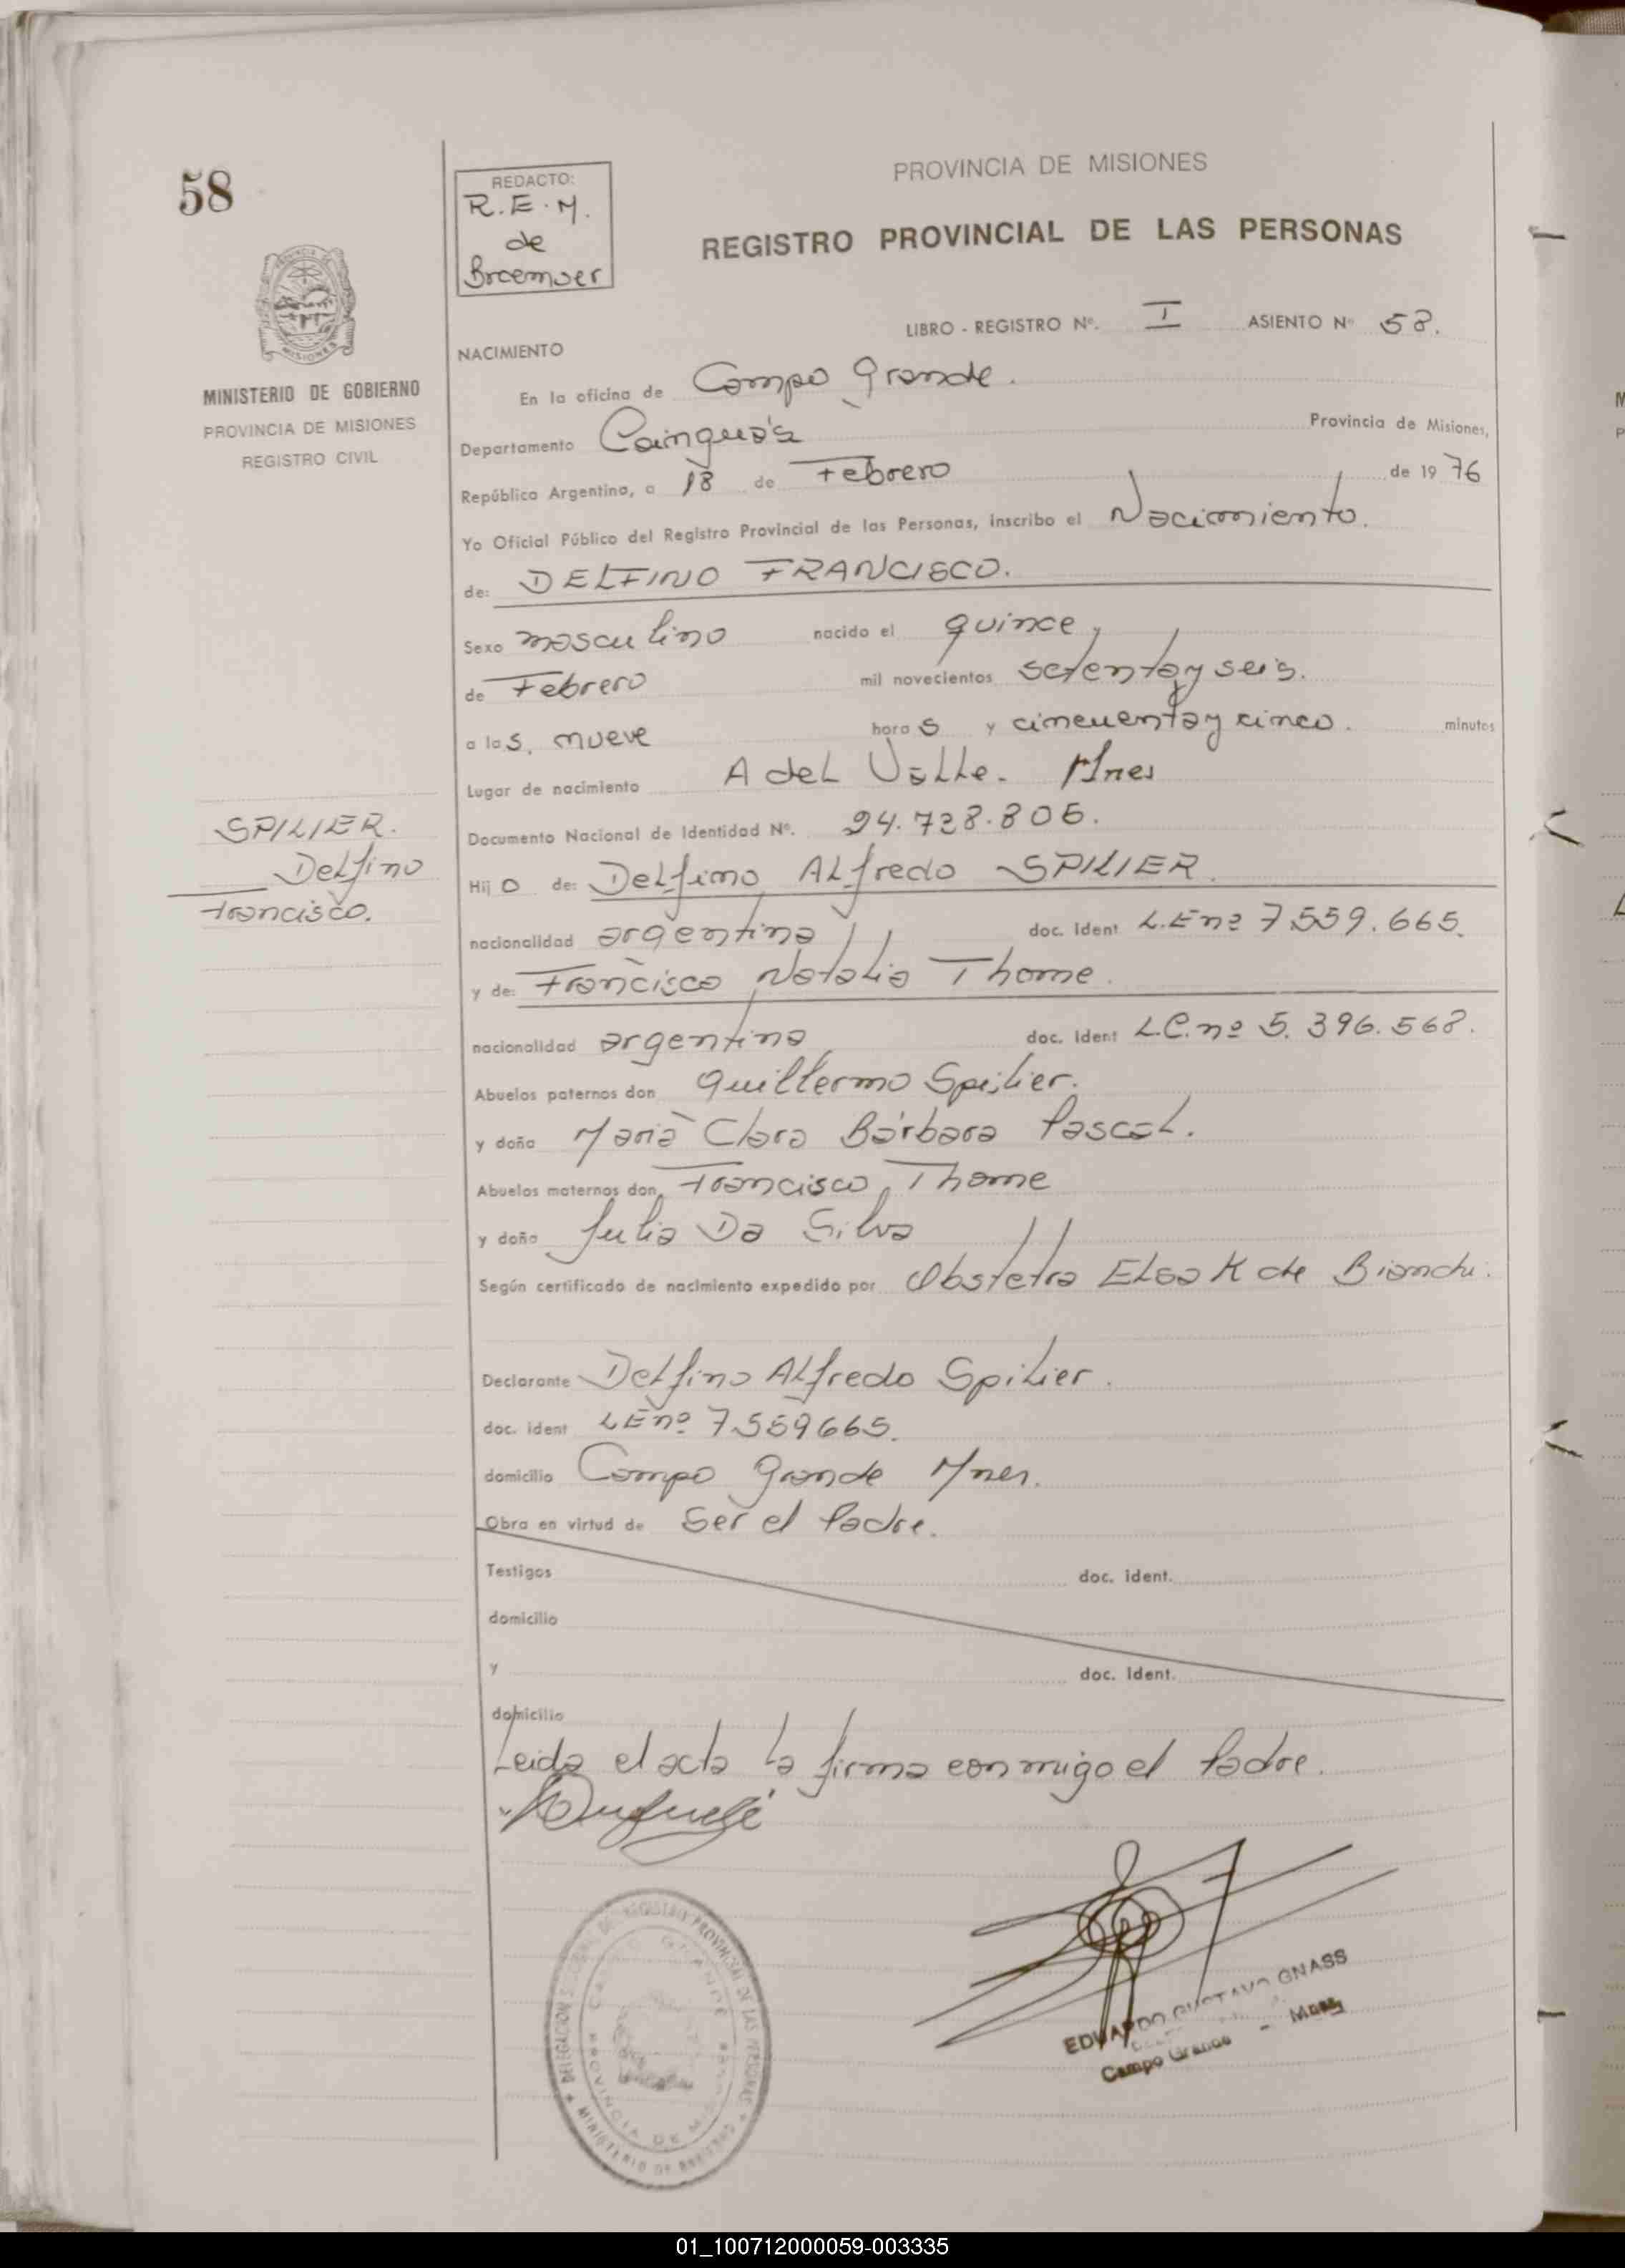 58
REDACTO:
R.E.M.
de
Broemser
PROVINCIA DE MISIONES
REGISTRO PROVINCIAL DE LAS PERSONAS
LIBRO - REGISTRO Nº. I ASIENTO Nº 58.
MISIONES
MINISTERIO DE GOBIERNO
PROVINCIA DE MISIONES
REGISTRO CIVIL
NACIMIENTO
En la oficina de Campo Grande.
Departamento Cainguás
Provincia de Misiones,
República Argentina, a 18 de Febrero de 1976
Yo Oficial Público del Registro Provincial de las Personas, inscribo el Nacimiento.
de: DELFINO FRANCISCO.
Sexo masculino nacido el quince
de Febrero mil novecientos setenta y seis.
a las, nueve horas y cincuenta y cinco. minutos
Lugar de nacimiento A del Valle. Mnes
Documento Nacional de Identidad Nº. 24.728.806.
SPILIER.
Delfino
Francisco.
Hijo de: Delfino Alfredo SPILIER.
nacionalidad argentina doc. Ident L.E nº 7.559.665.
y de: Francisca Natalia Thome.
nacionalidad argentina doc. Ident L.C. nº 5.396.568.
Abuelos paternos don Guillermo Spilier.
y doña María Clara Bárbara Pascal.
Abuelos maternos don Francisco Thome
y doña Julia Da Silva
Según certificado de nacimiento expedido por Obstetra Elsa K de Bianchi.
Declarante Delfino Alfredo Spilier.
doc. ident L E nº 7.559665.
domicilio Campo Grande Mnes.
Obra en virtud de Ser el Padre.
Testigos doc. ident.
domicilio
y doc. Ident.
domicilio
Leída el acta la firma conmigo el Padre.
DELEGACION DEL REGISTRO PROVINCIAL DE LAS PERSONAS
MINISTERIO DE GOBIERNO
PROVINCIA DE
EDUARDO GUSTAVO GNASS
Campo Grande - Mnes
01_100712000059-003335